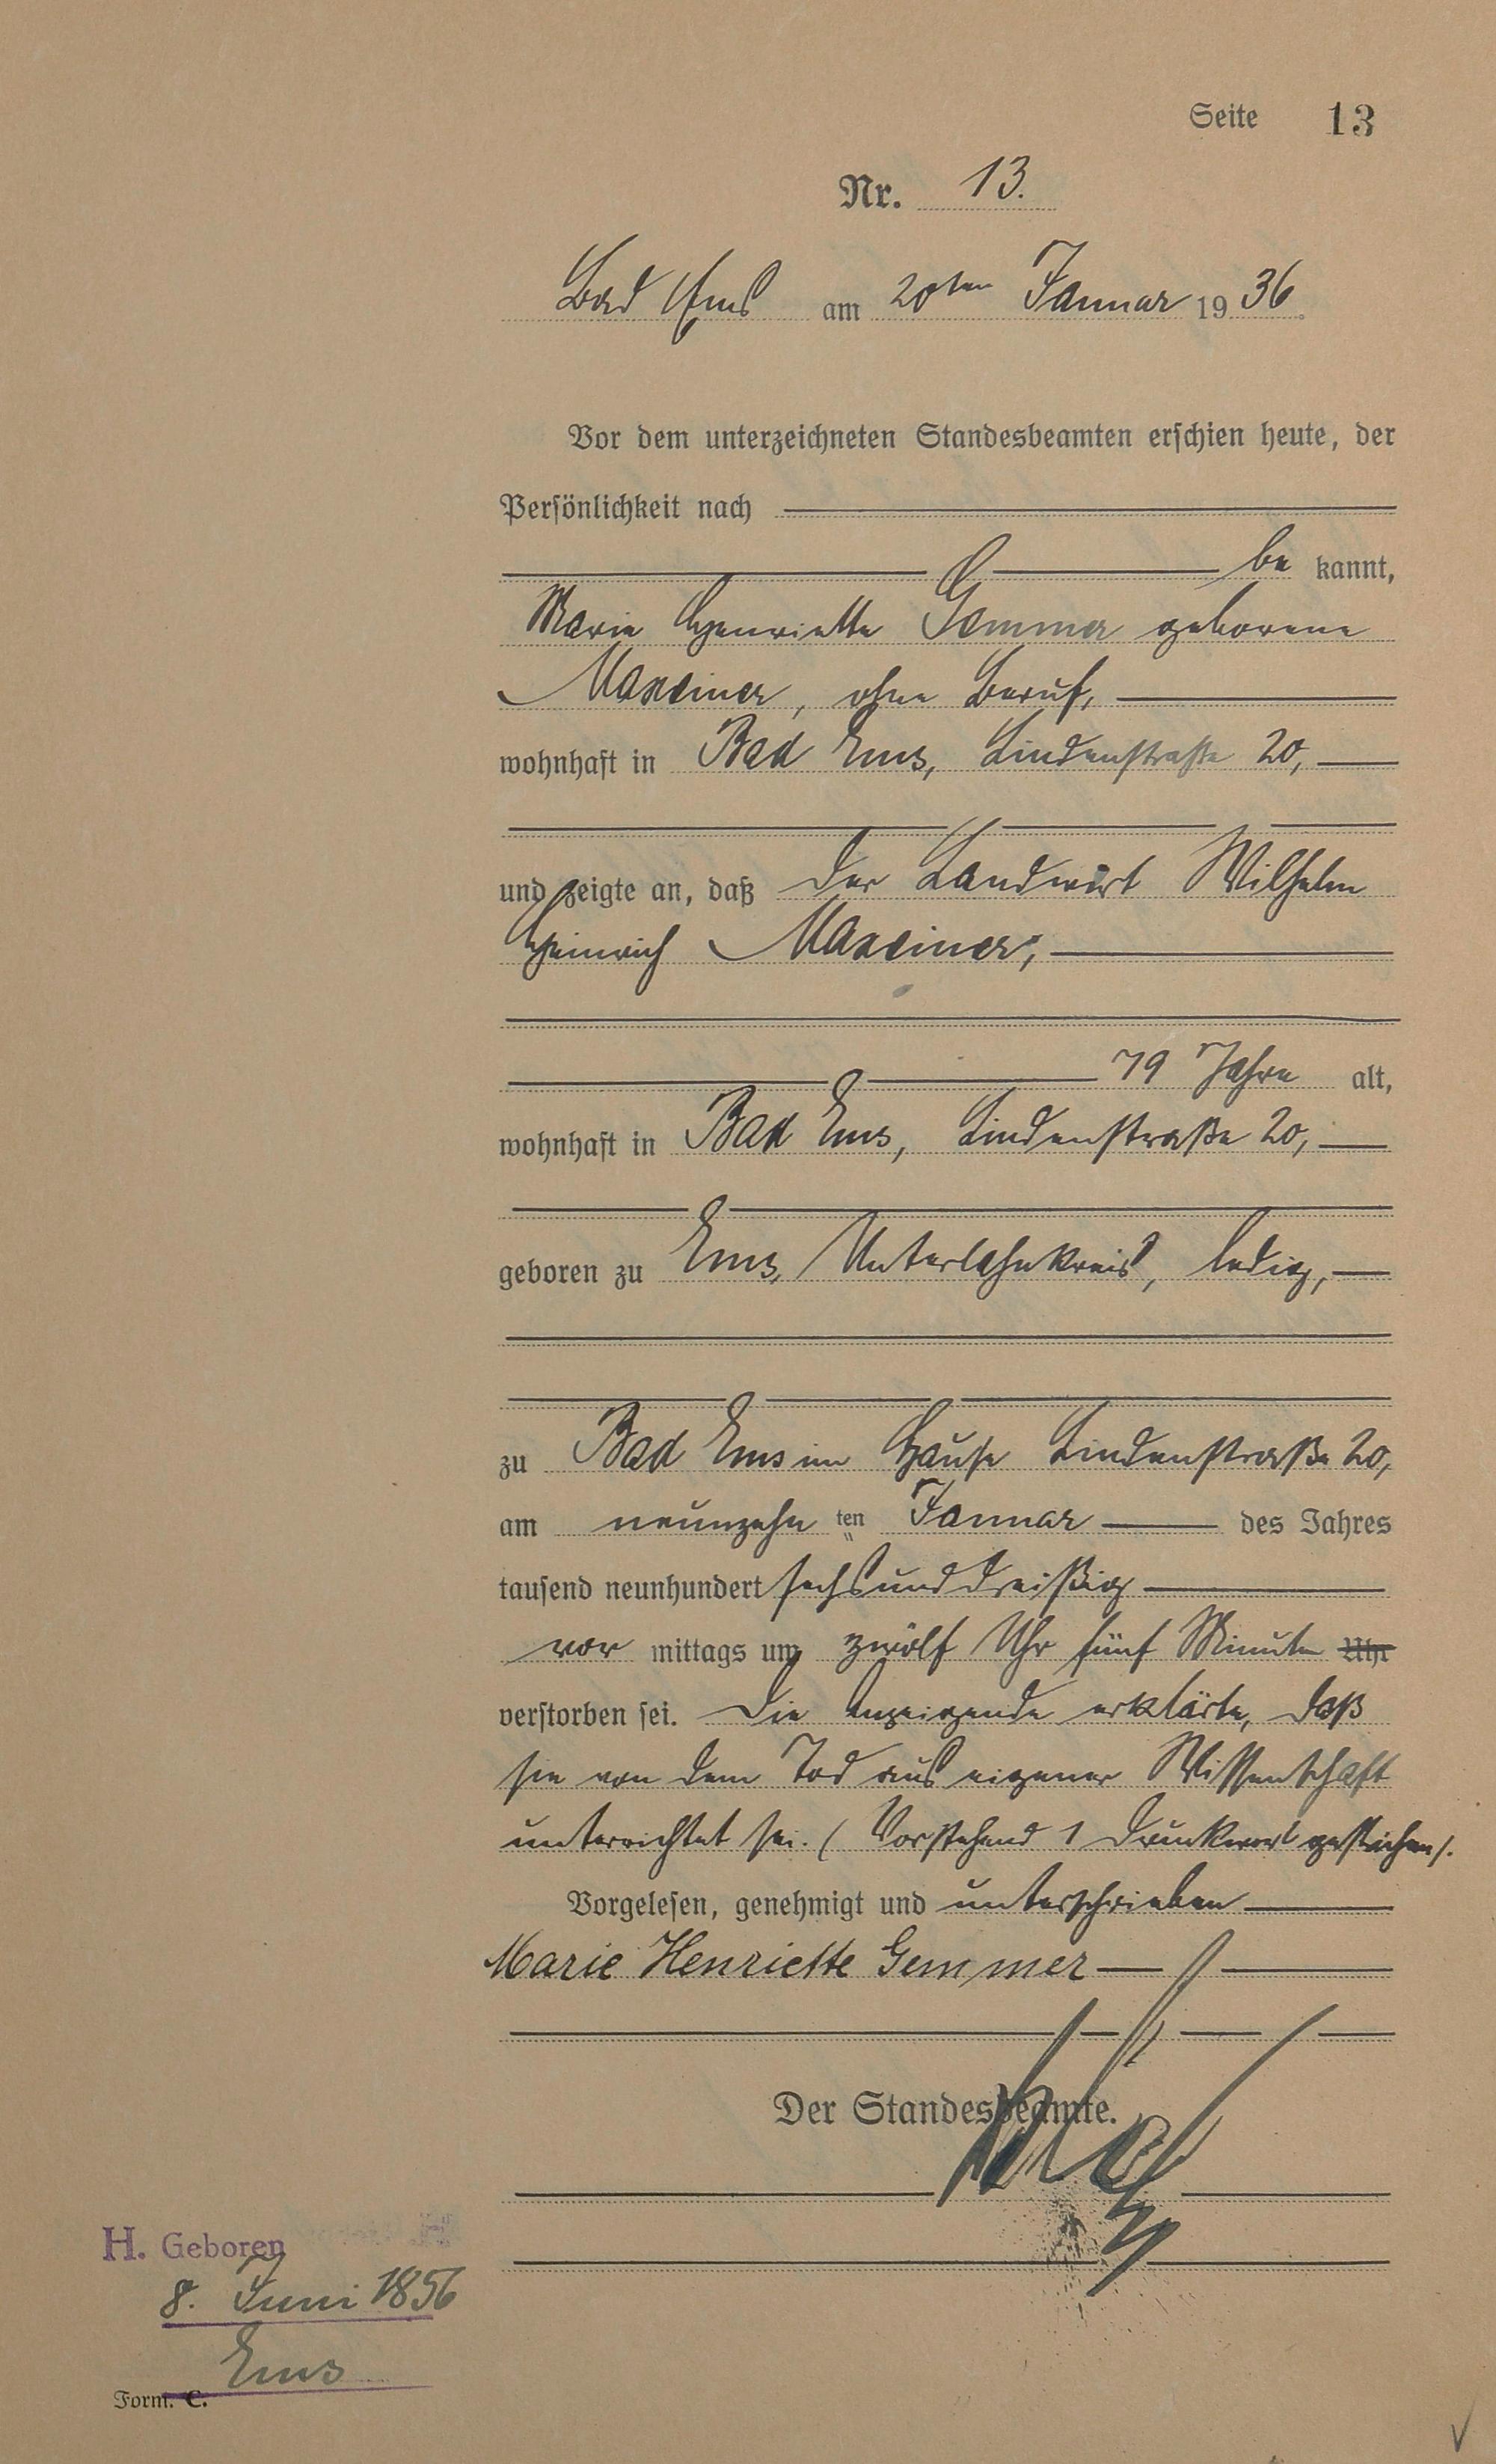 Seite 13
Nr. 13.
Bad Ems am 20ten Januar 1936.
Vor dem unterzeichneten Standesbeamten erschien heute, der
Persönlichkeit nach
be kannt,
Marie Henriette Gemmer geborene
Maxeiner, ohne Beruf,
wohnhaft in Bad Ems, Lindenstraße 20,
und zeigte an, daß der Landwirt Wilhelm
Heinrich Maxeiner,
79 Jahre alt,
wohnhaft in Bad Ems, Lindenstraße 20,
geboren zu Ems, Unterlahnkreis, ledig,
zu Bad Ems im Hause Lindenstraße 20,
am neunzehn ten Januar des Jahres
tausend neunhundert sechsunddreißig
vor mittags um zwölf Uhr fünf Minuten Uhr
verstorben sei. Die Anzeigende erklärte, daß
sie von dem Tod aus eigener Wissenschaft
unterrichtet sei. (Vorstehend 1 Druckwort gestrichen).
Vorgelesen, genehmigt und unterschrieben
Marie Henriette Gemmer
Der Standesbeamte.
H. Geboren
8. Juni 1856
Ems
Form. C.